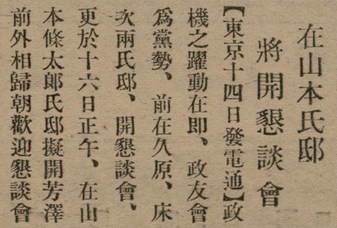 在山本氏邸
將開懇談會
【東京十四日發電通】政
機之躍動在即、政友會
爲黨勢、前在久原、床
次兩氏邸、開懇談會、
更於十六日正午、在山
本條太郎氏邸擬開芳澤
前外相歸朝歡迎懇談會